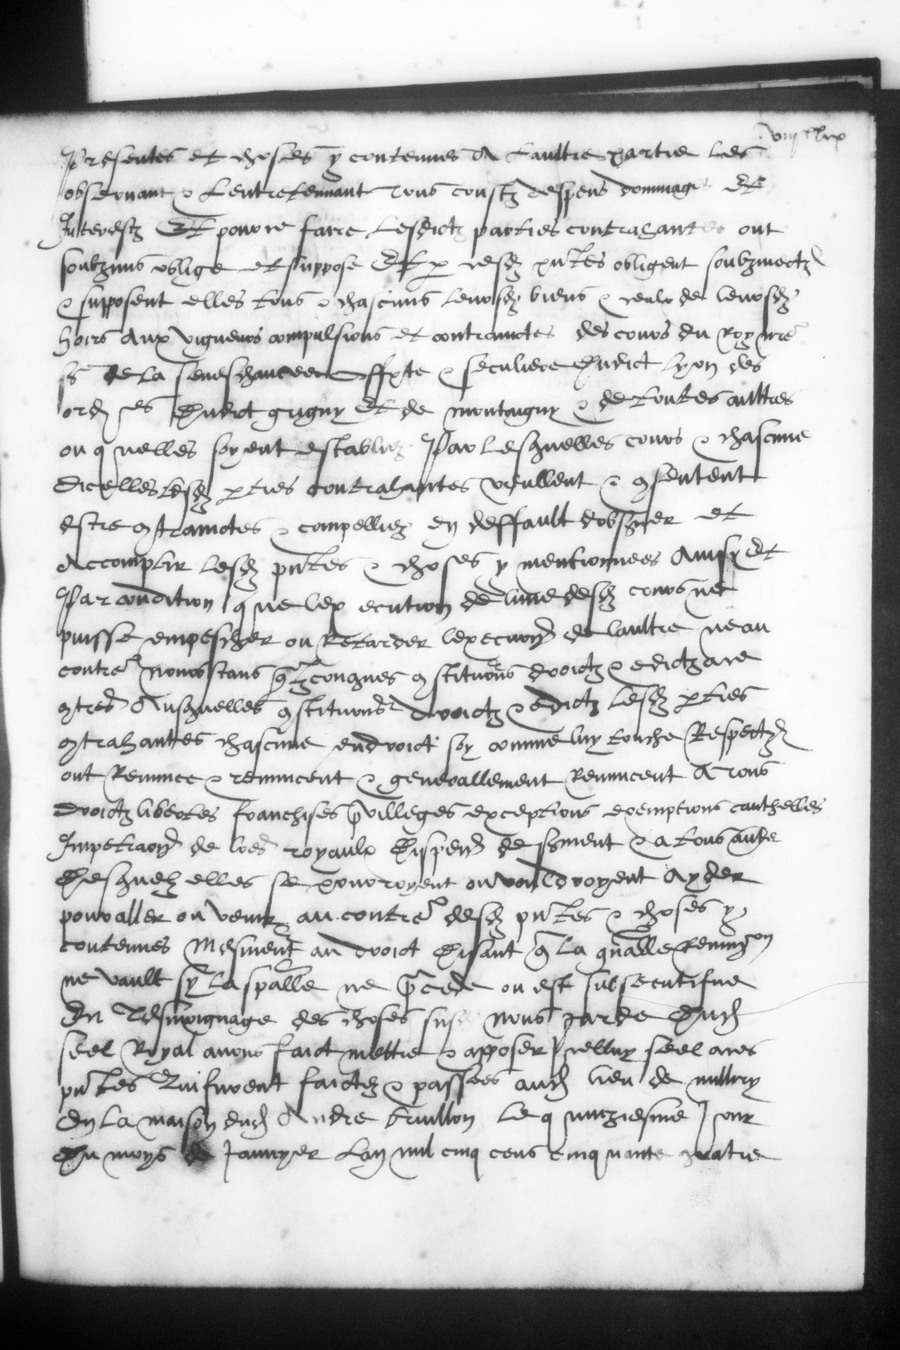 presentes et choses y contenues A laultre partie les
observant & lentretennant tous coustz despens dommages et
Interestz Et pource faire lesdictz parties contrahantes ont
soubzmis oblige et suppose Et p cesd pntes obligent soubzmectz
& supposent elles tous & chascuns leursd biens & ceulx de leursd
hoirs aux vigueurs compulsions et contrainctes des cours du Roy nre
sr de la seneschaucee & seculiere dudict lyon des
ord es dudict grigny Et de montaigny & de toutes aultres
ou quelles soyent establies Par lesquelles cours & chascune
dicelles lesd pties contrahantes veullent & gsentent
estre gtrainctes & compelliez en deffault dobserver et
Accomplir lesd pntes & choses y mentionnees Ainsy Et
Par condition que lexecution de lune desd cours ne
puisse empescher ou Retarder lexecuon de laultre ne au
contre nonobstans qlzconques gstituons droictz & edictz a ce
gtres Ausquelles gstituons droictz & edictz lesd pties
gtrahantes chascune endroict soy comme luy touche Respectz
ont Renunce & renuncent & generallement Renuncent A tous
droictz libertes franchises pvilleges exceptions exemptions cauthelles
Impetraons de lres royaulx dispens de serment & a tous aultre
desquelz elles se pourroyent ou vouldroyent Ayder
pour aller ou venir au contre desd pntes & choses y
contenues Mesment au droict disant q la gnalle Renunon
ne vault sy la spalle ne pcede ou est subsecutifue
En Tesmoignage des choses susd nous garde dud
seel Royal avons faict mettre & apposer Icelluy seel a ces
pntes Qui furent faictez & passees aud lieu de millery
En la maison dud Andre brullon le quinziesme Jour
du moys de Janvyer Lan mil cinq cens cinquante quatre